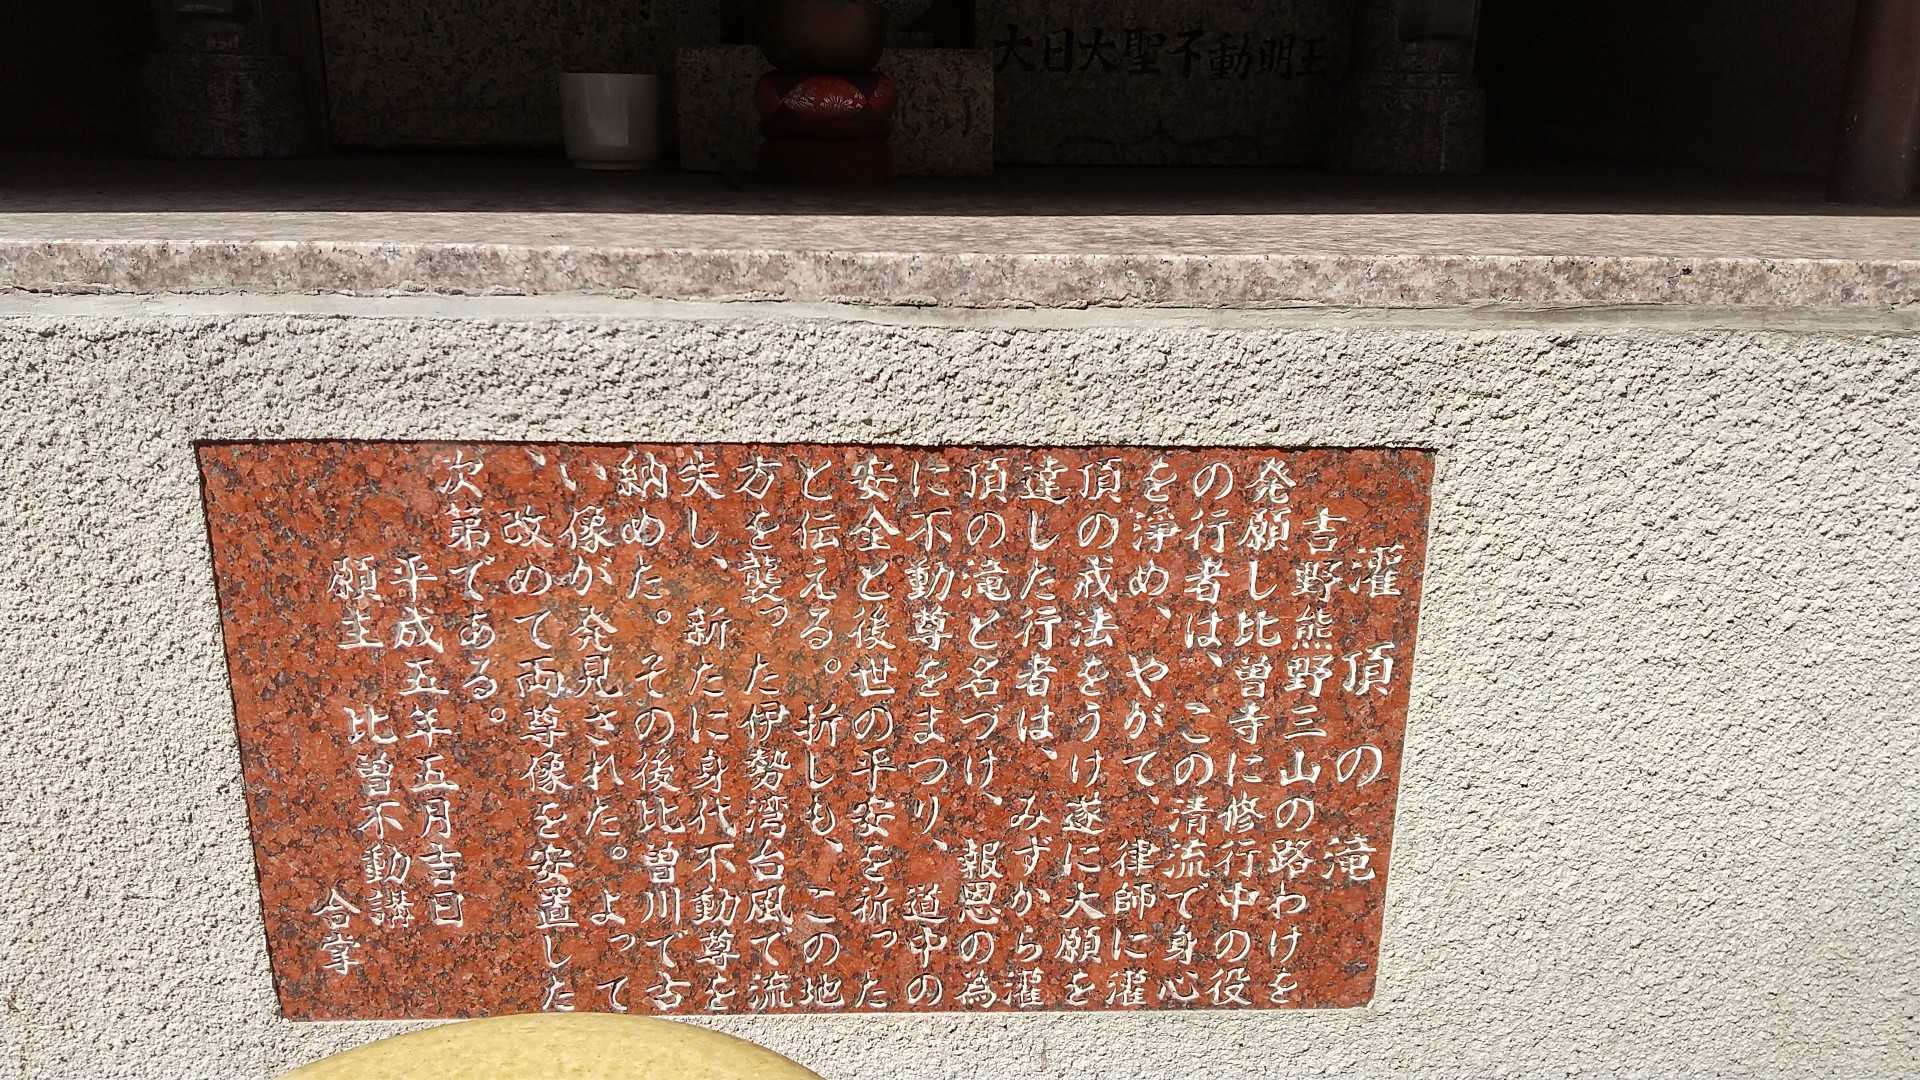 大日大聖不動明王
灌頂の滝
吉野熊野三山の路わけを
発願し比曽寺に修行中の役
の行者は、この清流で身心
を淨め、やがて、律師に灌
頂の戒法をうけ遂に大願を
達した行者は、みずから灌
頂の滝と名づけ、報恩の為
に不動尊をまつり、道中の
安全と後世の平安を祈った
と伝える。折しも、この地
方を襲った伊勢湾台風で流
失し、新たに身代不動尊を
納めた。その後比曽川で古
い像が発見された。よって
、改めて両尊像を安置した
次第である。
平成五年五月吉日
願主 比曽不動講
合掌